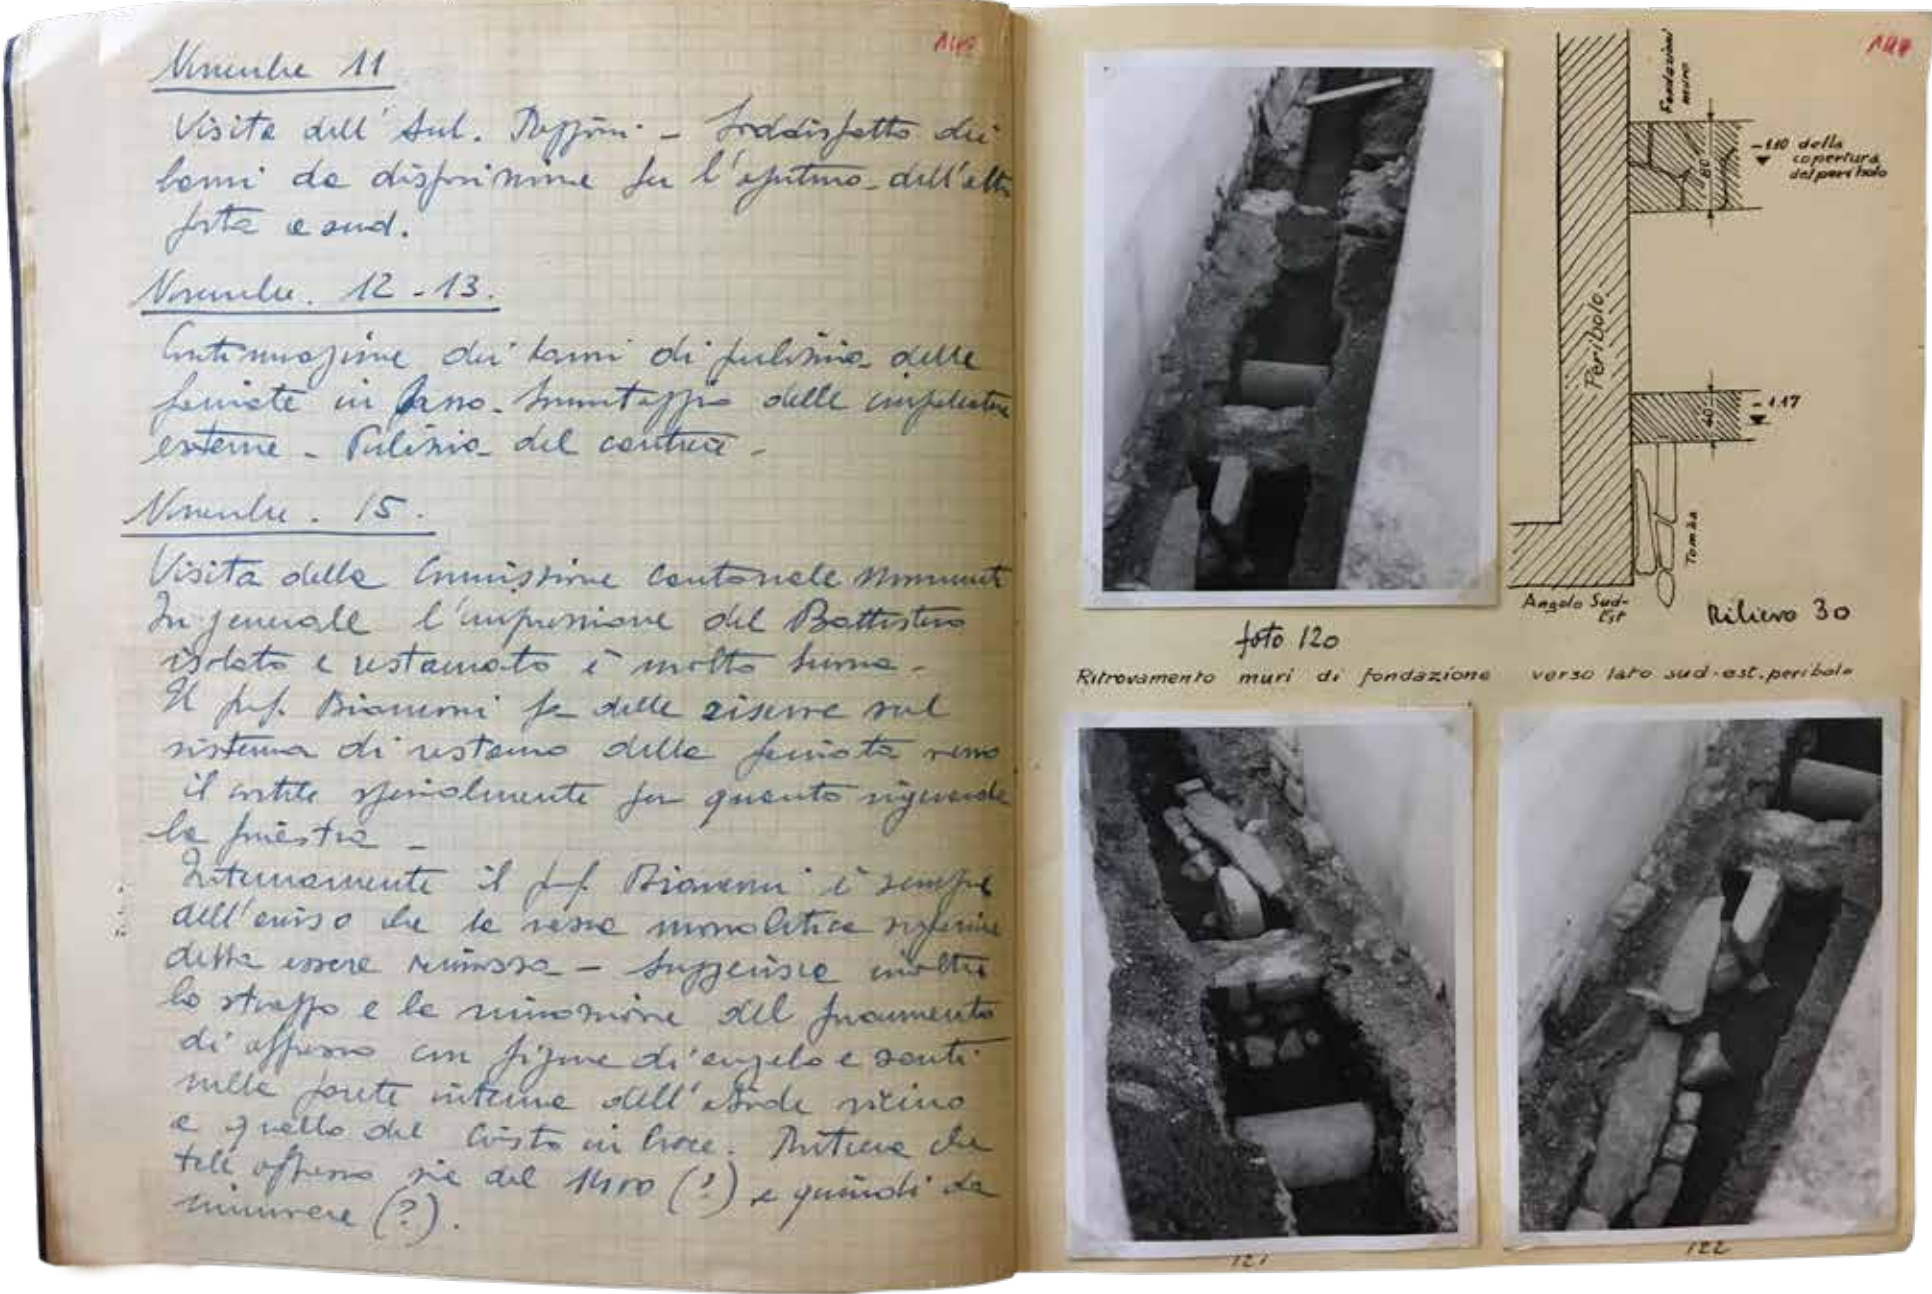 Novembre 11
Visita dell' Sul. Poffini - Soddisfatto dei
lavori da disposizione per l'apertura dell'altra
porta a sud.
Novembre. 12-13.
Continuazione dei lavori di pulizia delle
facciate in sasso. Smontaggio delle impalcature
esterne - Pulizia del cantiere -
Novembre. 15.
Visita della Commissione Cantonale Monumenti
In generale l'impressione del Battistero
isolato e restaurato è molto buona -
Il prof. Bianconi fa delle riserve sul
sistema di restauro della facciata verso
il cortile specialmente per quanto riguarda
la finestra -
Internamente il prof. Bianconi è sempre
dell'avviso che la vasca monolitica superiore
debba essere rimossa - Suggerisce inoltre
lo strappo e la rimozione del frammento
di affresco con figure di angelo e santi
nella parete interna dell'abside vicino
a quello del Cristo in Croce. Ritiene che
tale affresco sia del 1400 (?) e quindi da
rimuovere (?).
Fondazioni
muro
80
-1.10 della
copertura
del peribolo
Peribolo
-1.17
40
Tomba
Angolo Sud-
Est
Rilievo 30
foto 120
Ritrovamento muri di fondazione verso lato sud-est. peribolo
121
122